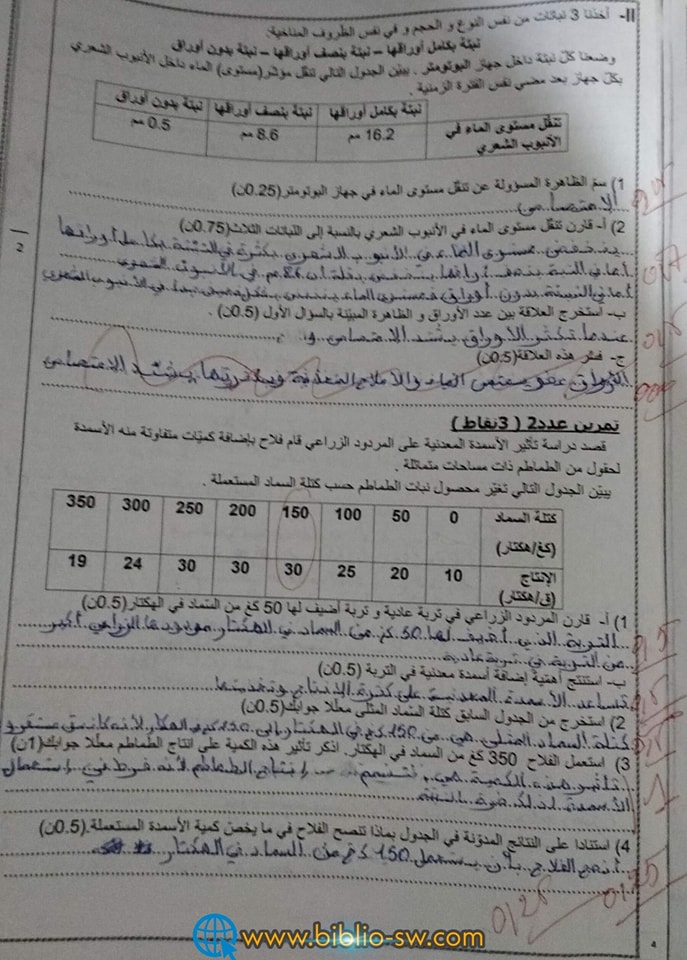 II- أخذنا 3 نباتات من نفس النوع و الحجم و في نفس الظروف المناخية:
نبتة بكامل أوراقها – نبتة بنصف أوراقها – نبتة بدون أوراق
وضعنا كلّ نبتة داخل جهاز البوتومتر . يبيّن الجدول التالي تنقّل مؤشر(مستوى) الماء داخل الأنبوب الشعري
بكلّ جهاز بعد مضي نفس الفترة الزمنية .
نبتة بكامل أوراقها نبتة بنصف أوراقها نبتة بدون أوراق
تنقّل مستوى الماء في الأنبوب الشعري 16.2 مم 8.6 مم 0.5 مم
1) سمّ الظاهرة المسؤولة عن تنقّل مستوى الماء في جهاز البوتومتر (0.25ن)
الامتصاص
2) أ- قارن تنقّل مستوى الماء في الأنبوب الشعري بالنسبة إلى النباتات الثلاث(0.75ن)
ينخفض مستوى الماء في الأنبوب الشعري بكثرة في النبتة بكامل أوراقها
أما في النبتة بنصف أوراقها ينخفض بقلة 8.6 مم في الأنبوب الشعري
أما في النبتة بدون أوراق فمستوى الماء ينخفض جدا في الأنبوب الشعري
ب- استخرج العلاقة بين عدد الأوراق و الظاهرة المبيّنة بالسؤال الأول (0.5ن) .
عندما تكثر الأوراق يشتد الامتصاص و
ج- فسّر هذه العلاقة(0.5ن)
الأوراق عضو يمتص الماء والأملاح المعدنية وبكثرتها يشتد الامتصاص
2
تمرين عدد2 ( 3نقاط )
قصد دراسة تأثير الأسمدة المعدنية على المردود الزراعي قام فلاح بإضافة كميّات متفاوتة منه الأسمدة
لحقول من الطماطم ذات مساحات متماثلة .
يبيّن الجدول التالي تغيّر محصول نبات الطماطم حسب كتلة السماد المستعملة .
كتلة السماد (كغ/هكتار) 0 50 100 150 200 250 300 350
الإنتاج (ق/هكتار) 10 20 25 30 30 30 24 19
1) أ- قارن المردود الزراعي في تربة عادية و تربة أضيف لها 50 كغ من السّماد في الهكتار(0.5ن)
التربة الذي أضيف لها 50 كغ من السماد في الهكتار مردودها الزراعي أكبر
من التربة في تربة عادية
ب- استنتج أهمية إضافة أسمدة معدنية في التربة (0.5ن)
تساعد الأسمدة المعدنية على كثرة الإنتاج و
2) استخرج من الجدول السابق كتلة السّماد المثلى معلّلا جوابك(0.5ن)
كتلة السماد المثلى هي من 150 كغ في الهكتار إلى 250 كغ في الهكتار لأنه
3) استعمل الفلاح 350 كغ من السماد في الهكتار. اذكر تأثير هذه الكمية على انتاج الطماطم معلّلا جوابك(1ن)
تأثير هذه الكمية هي إنتاج الطماطم لأنه فرط في إستعمال
الأسمدة
4) استنادا على النتائج المدوّنة في الجدول بماذا تنصح الفلاح في ما يخصّ كمية الأسمدة المستعملة.(0.5ن)
أنصح الفلاح بأن يستعمل 150 كغ من السماد في الهكتار
0,25
www.biblio-sw.com
4